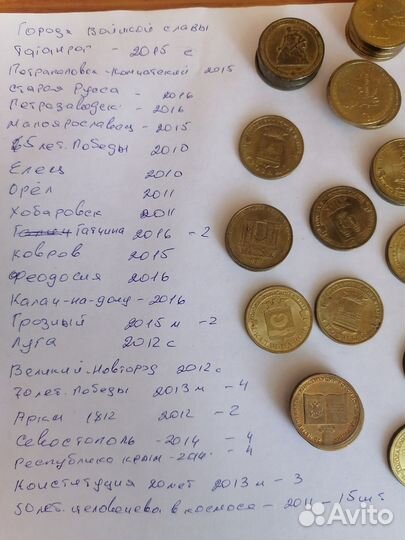 Города Воинской славы
Таганрог - 2015 с
Петраполовск-Комчатский 2015
Старая Русса - 2016
Петрозаводск - 2016
Малоярославец - 2015
65 лет. Победы 2010
Елец 2010
Орёл 2011
Хобаровск 2011
Гатчина 2016 - 2
Ковров 2015
Феодосия 2016
Калач-на-дону - 2016
Грозный 2015 м - 2
Луга 2012 с
Великий-Новгород 2012 с
70 лет. Победы 2013 м - 4
Арка 1812 2012 - 2
Севостополь - 2014 - 4
Республика Крым - 2014 - 4
Конституция 20 лет 2013 м - 3
50 лет. человечева в космосе - 2011 - 15 шт
Avito